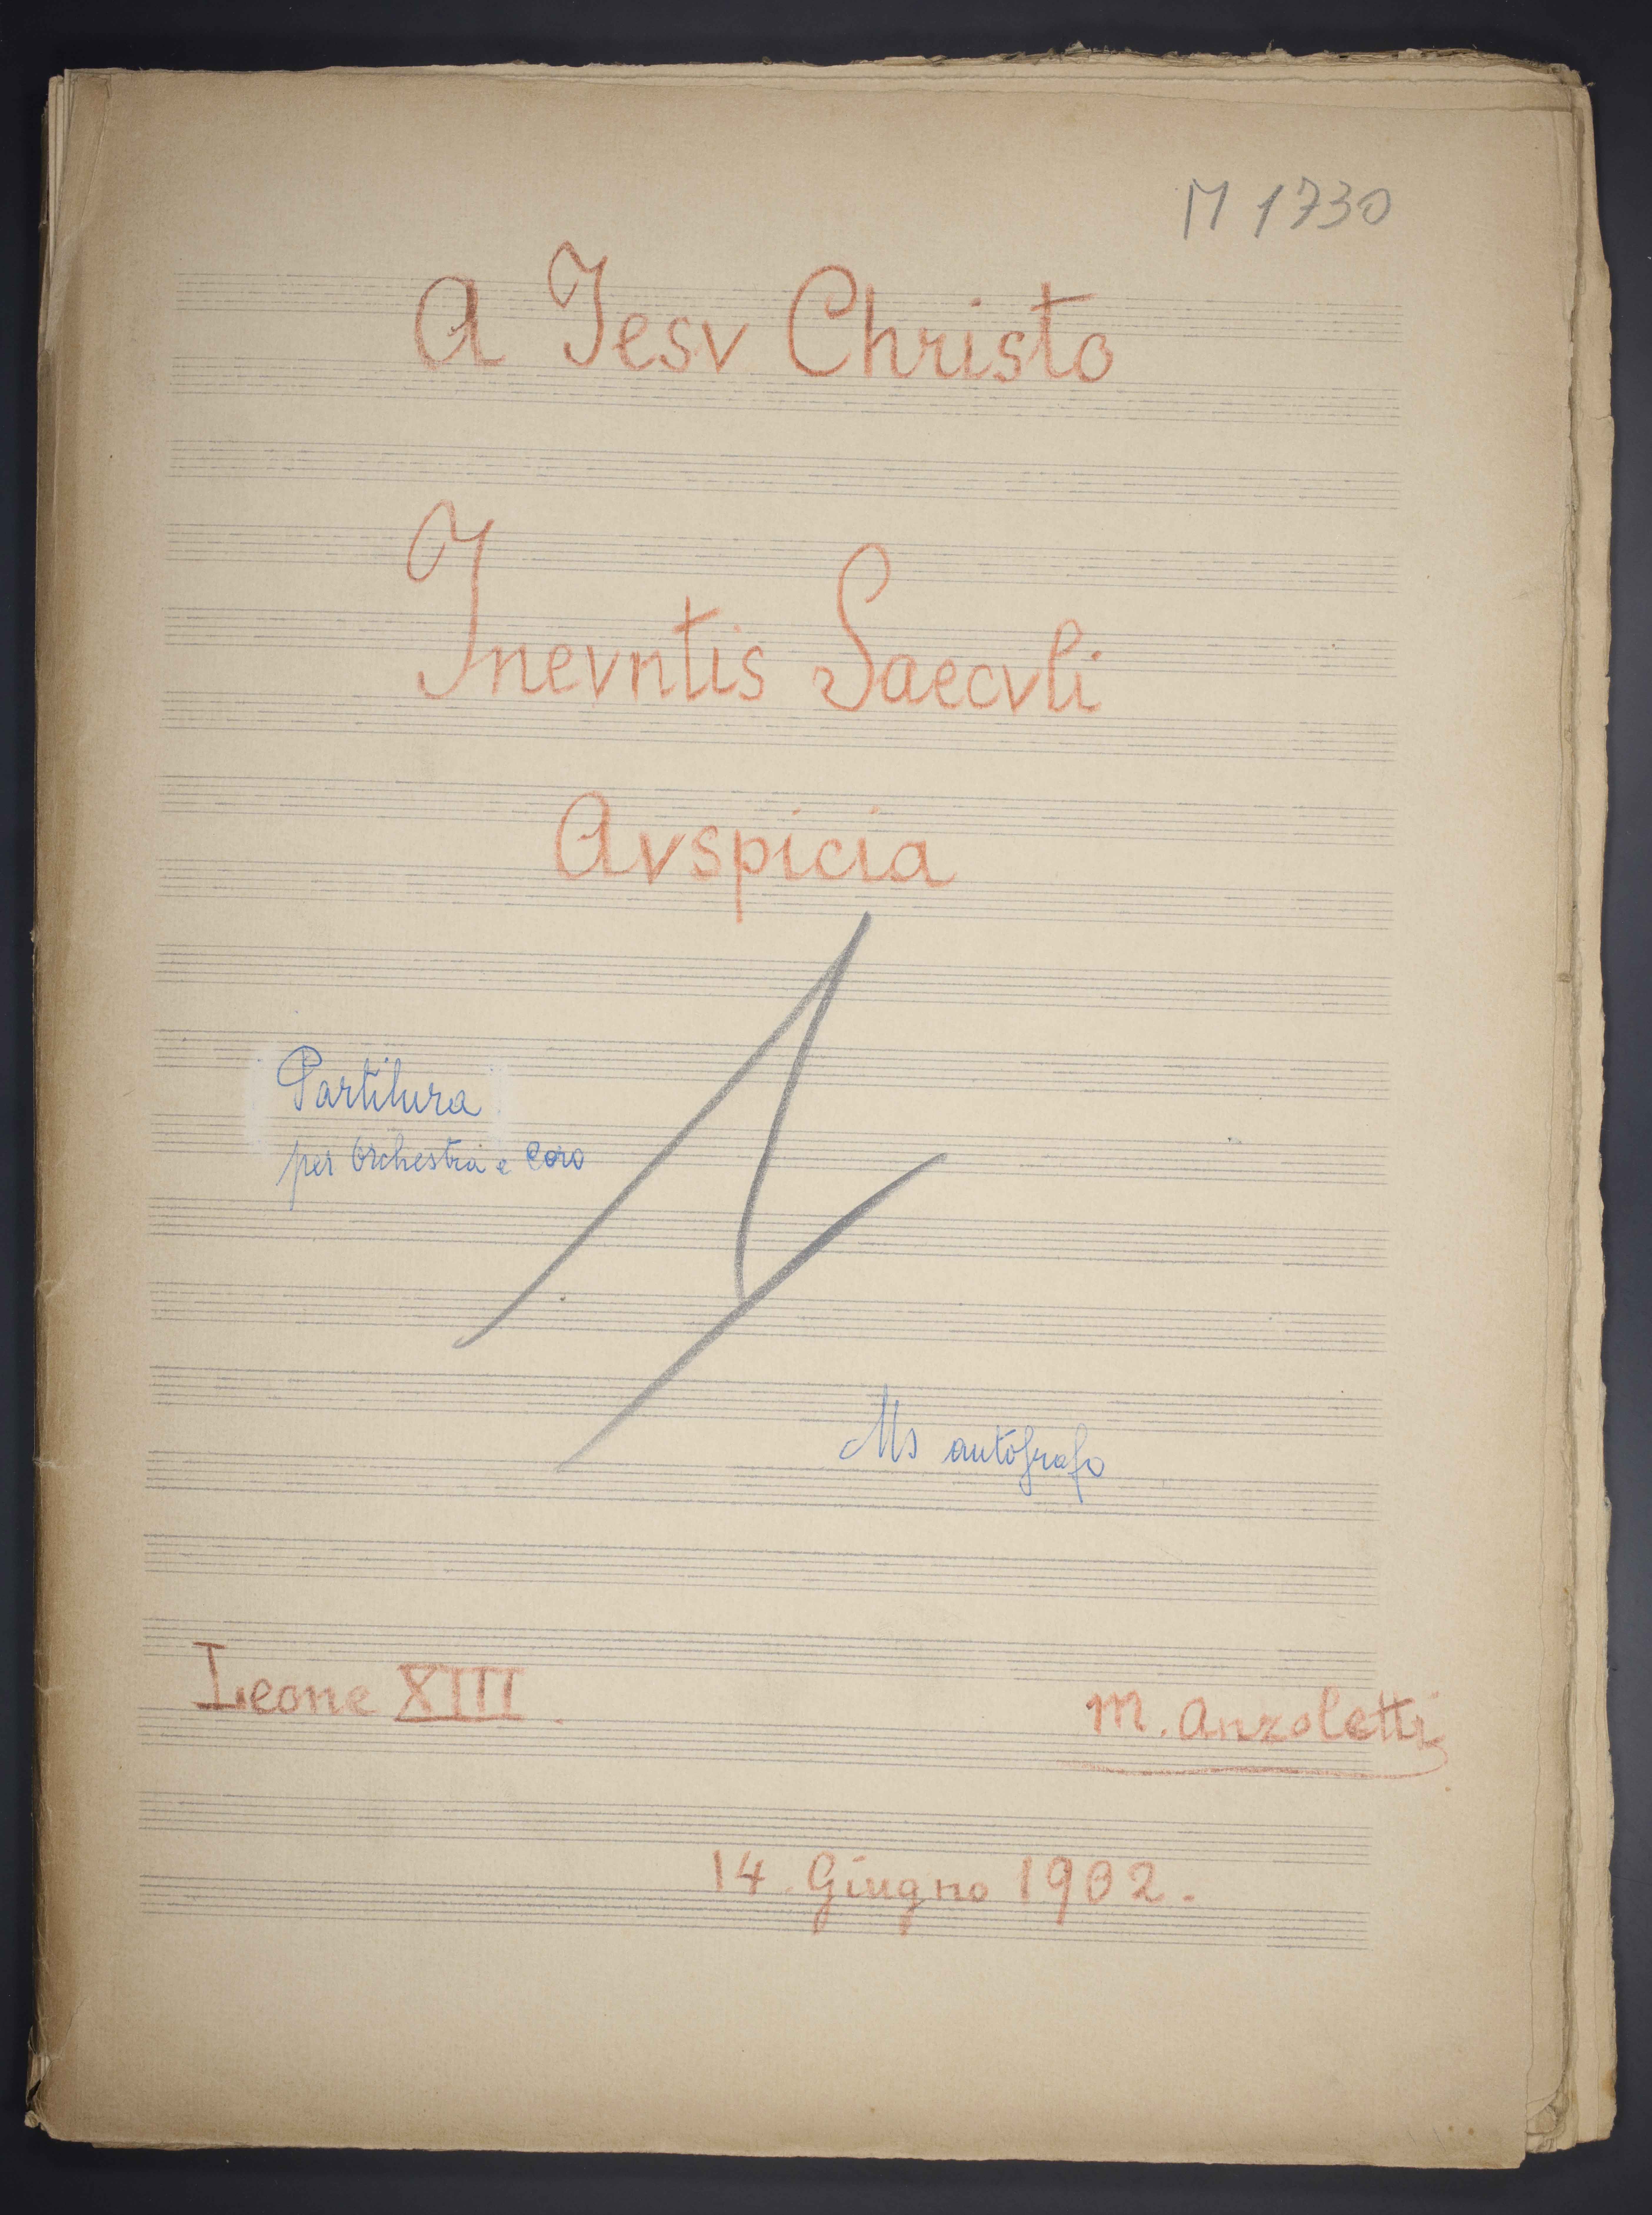 M 1730
A Iesv Christo
Inevntis Saecvli
Avspicia
1
Partitura
per Orchestra e Coro
Ms autografo
Leone XIII.
M. Anzoletti
14. Giugno 1902.